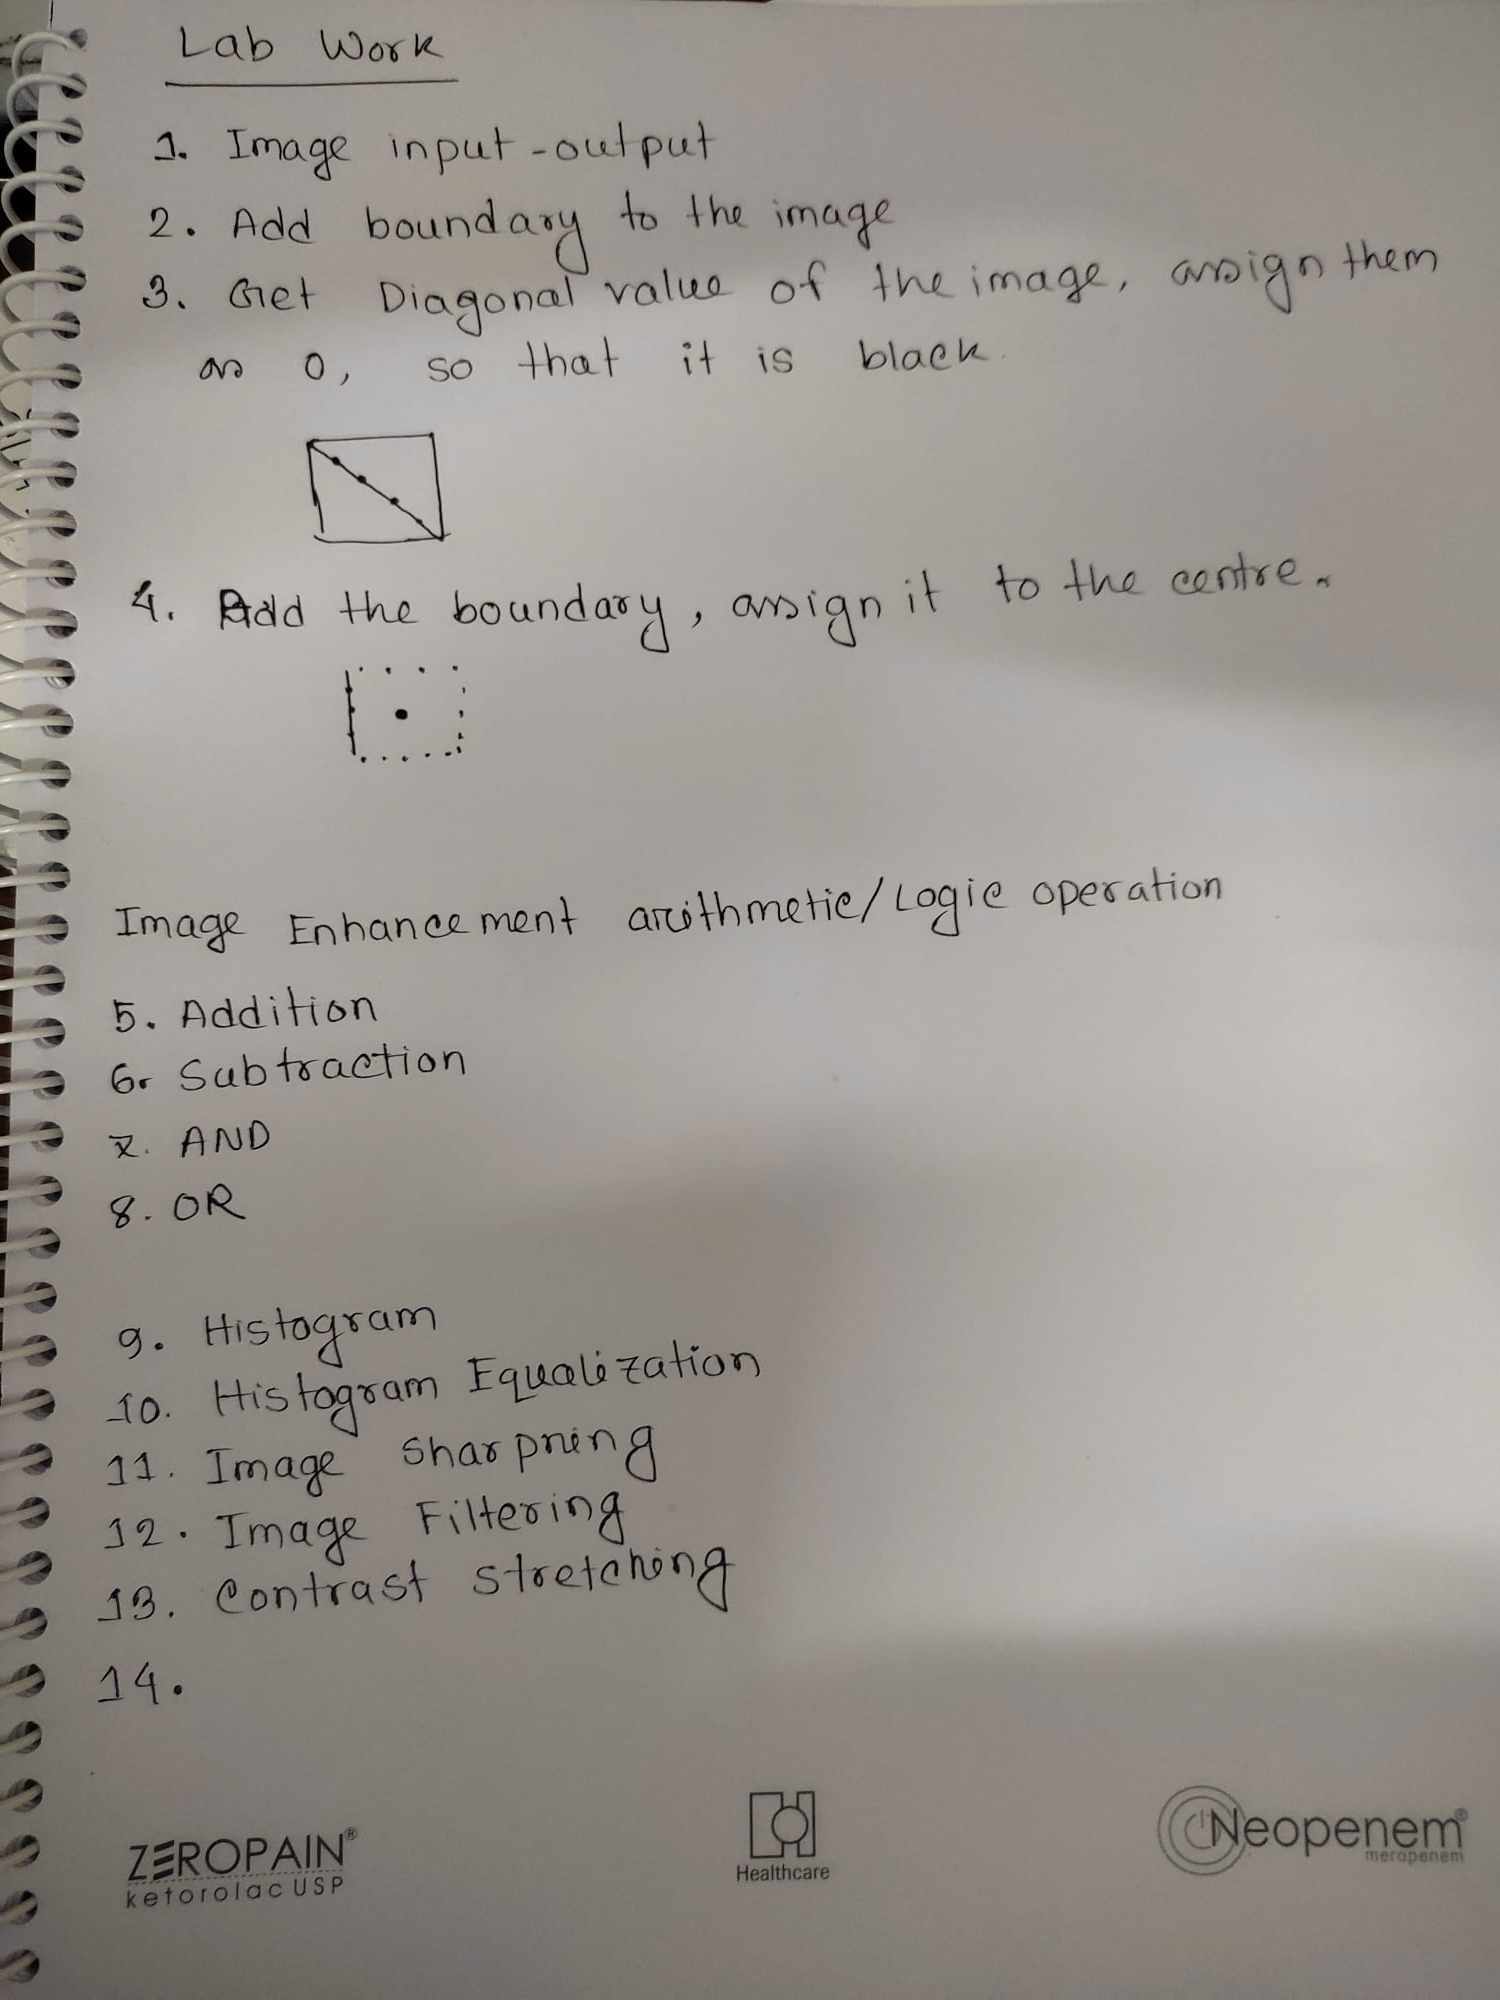 Lab Work
1. Image input-output
2. Add boundary to the image
3. Get Diagonal value of the image, assign them
as 0, so that it is black.
4. Add the boundary, assign it to the centre.
Image Enhancement arithmetic/Logic operation
5. Addition
6. Subtraction
7. AND
8. OR
9. Histogram
10. Histogram Equalization
11. Image Sharpning
12. Image Filtering
13. Contrast stretching
14.
ZEROPAIN®
ketorolac USP
Healthcare
Neopenem®
meropenem